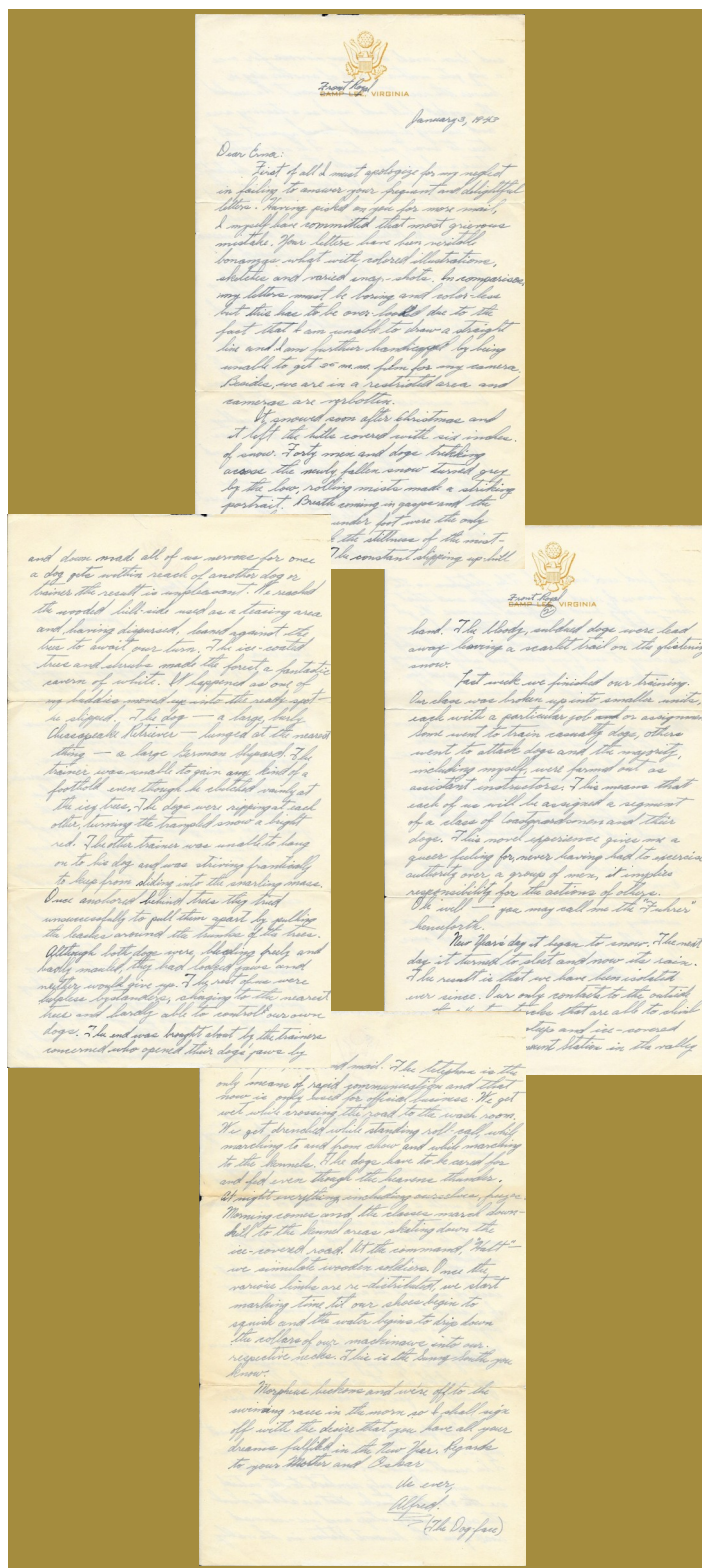 Front Royal
CAMP LEE, VIRGINIA
January 3, 1943
Dear Erna:
First of all I must apologize for my neglect
in failing to answer your frequent and delightful
letters. Having picked on you for more mail,
I myself have committed that most grievous
mistake. Your letters have been veritable
bonanzas what with colored illustrations,
sketches and varied snap-shots. In comparison,
my letters must be boring and color-less
but this has to be over-looked due to the
fact that I am unable to draw a straight
line and I am further handicapped by being
unable to get 35 m.m. film for my camera.
Besides, we are in a restricted area and
cameras are verbotten.
It snowed soon after Christmas and
it left the hills covered with six inches
of snow. Forty men and dogs trekking
across the newly fallen snow turned grey
by the low, rolling mists made a striking
portrait. Breath coming in gasps and the
under foot were the only
the stillness of the mist-
The constant slipping up-hill
and down made all of us nervous for once
a dog gets within reach of another dog or
trainer the result is unpleasant. We reached
the wooded hill-side used as a teasing area
and having dispersed, leaned against the
trees to await our turn. The ice-coated
trees and shrubs made the forest a fantastic
cavern of white. It happened as one of
my buddies moved up into the ready spot -
he slipped. The dog — a large, burly
Chesapeake Retriever — lunged at the nearest
thing — a large German Shepard. The
trainer was unable to gain any kind of a
foothold even though he clutched vainly at
the icy trees. The dogs were ripping at each
other, turning the trampled snow a bright
red. The other trainer was unable to hang
on to his dog and was striving frantically
to keep from sliding into the snarling mass.
Once anchored behind trees they tried
unsuccessfully to pull them apart by pulling
the leashes around the trunks of the trees.
Although both dogs were bleeding freely and
badly mauled, they had locked jaws and
neither would give up. The rest of us were
helpless bystanders, clinging to the nearest
trees and hardly able to control our own
dogs. The end was brought about by the trainers
concerned who opened their dogs jaws by
Front Royal
CAMP LEE, VIRGINIA
2
hand. The bloody, subdued dogs were lead
away leaving a scarlet trail on the glistening
snow.
Last week we finished our training.
Our class was broken up into smaller units,
each with a particular job and or assignment
Some went to train casualty dogs, others
went to attack dogs and the majority,
including myself, were farmed out as
assistant instructors. This means that
each of us will be assigned a segment
of a class of coastguardsmen and their
dogs. This novel experience gives me a
queer feeling for, never having had to exercise
authority over a group of men, it implies
responsibility for the actions of others.
Oh well — you may call me the "Fuhrer"
henceforth.
New Year's day it began to snow. The next
day it turned to sleet and now its rain.
The result is that we have been isolated
ever since. Our only contacts to the outside
that are able to skid
steeps and ice-covered
Station in the valley
and mail. The telephone is the
only means of rapid communication and that
now is only used for official business. We get
wet while crossing the road to the wash room.
We get drenched while standing roll-call, while
marching to and from chow and while marching
to the kennels. The dogs have to be cared for
and fed even though the heavens thunder.
At night everything, including ourselves, freezes.
Morning comes and the classes march down-
hill to the kennel areas skating down the
ice-covered road. At the command, "Halt" —
we simulate wooden soldiers. Once the
various limbs are re-distributed, we start
marking time til our shoes begin to
squish and the water begins to drip down
the collars of our mackinaws into our
respective necks. This is the Sunny South you
know.
Morpheus beckons and we're off to the
swimming races in the morn so I shall sign
off with the desire that you have all your
dreams fulfilled in the New Year. Regards
to your Mother and Oskar
As ever,
Alfred.
(The Dog face)